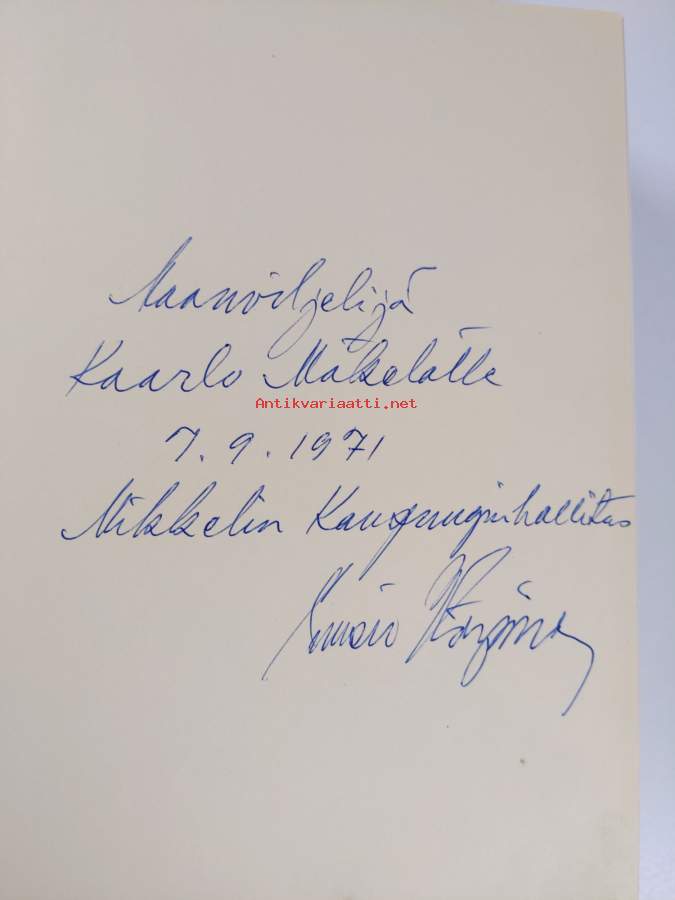 Maanviljelijä
Kaarlo Mäkelälle
Antikvariaatti.net
7.9.1971
Mikkelin Kaupunginhallitus